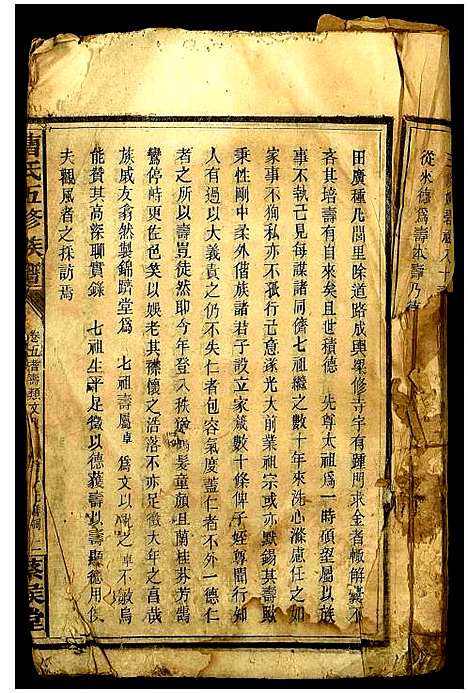 從來德爲壽本壽乃
田廣種凡閭里除道路成輿梁修寺宇有踵門求金者輒解囊不
吝其培壽有自來矣且世積德　先尊太祖爲一時碩望屬以族
事不執己見每謀諸同儕七祖繼之數十年來洗心滌慮任之如
家事不狥私亦不孤行己意遂光大前業祖宗或亦默錫其壽歟
秉性剛中柔外偕族諸君子設立家箴數十條俾子姪尊聞行知
人有犯以大義責之仍不失仁者包容氣度蓋仁者不外一德仁
者之所以壽豈徒然即今年登八秩鶴髮童顏且蘭桂芬芳鵠
鸞停峙更佐色笑以娛老其襟懷之浩落不亦足徵大年之昌哉
族戚友翕然製錦躋堂爲　七祖壽屬卓　爲文以祝之卓不敏烏
能贊其高深聊實錄　七祖生平足徵以德獲壽以壽顯德用俟
夫觀風者之採訪焉
曹氏五修族譜
卷五耆壽類文